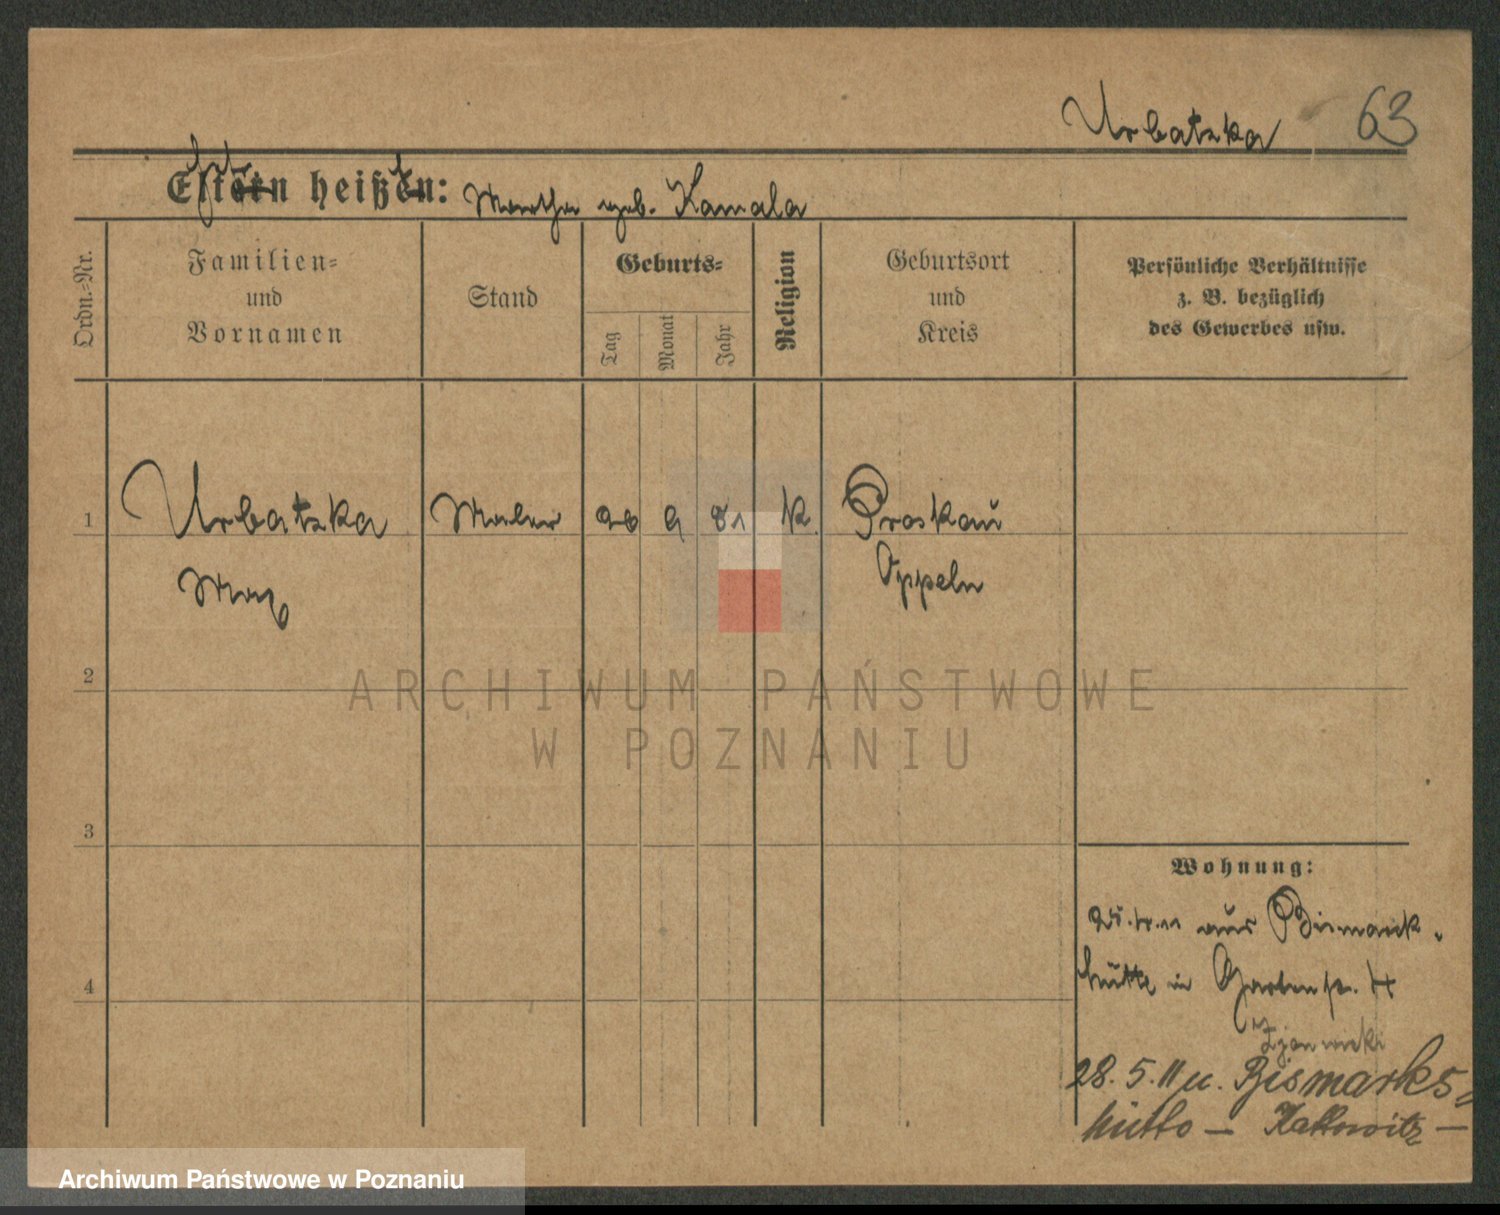 Urbatzka 63
Eltern heißen: Martha geb. Kamala
Ordn.-Nr.
Familien-
und
Vornamen
Stand
Geburts-
Tag
Monat
Jahr
Religion
Geburtsort
und
Kreis
Persönliche Verhältnisse
z. B. bezüglich
des Gewerbes usw.
1 Urbatzka Maler 26 9 81 k. Proskau
Max Oppeln
2
3
4
Wohnung:
aus Bismark-
hütte in Gartenstr. 4
28.5.11 u. Bismarks-
hütte – Kattowitz –
ARCHIWUM PAŃSTWOWE
W POZNANIU
Archiwum Państwowe w Poznaniu